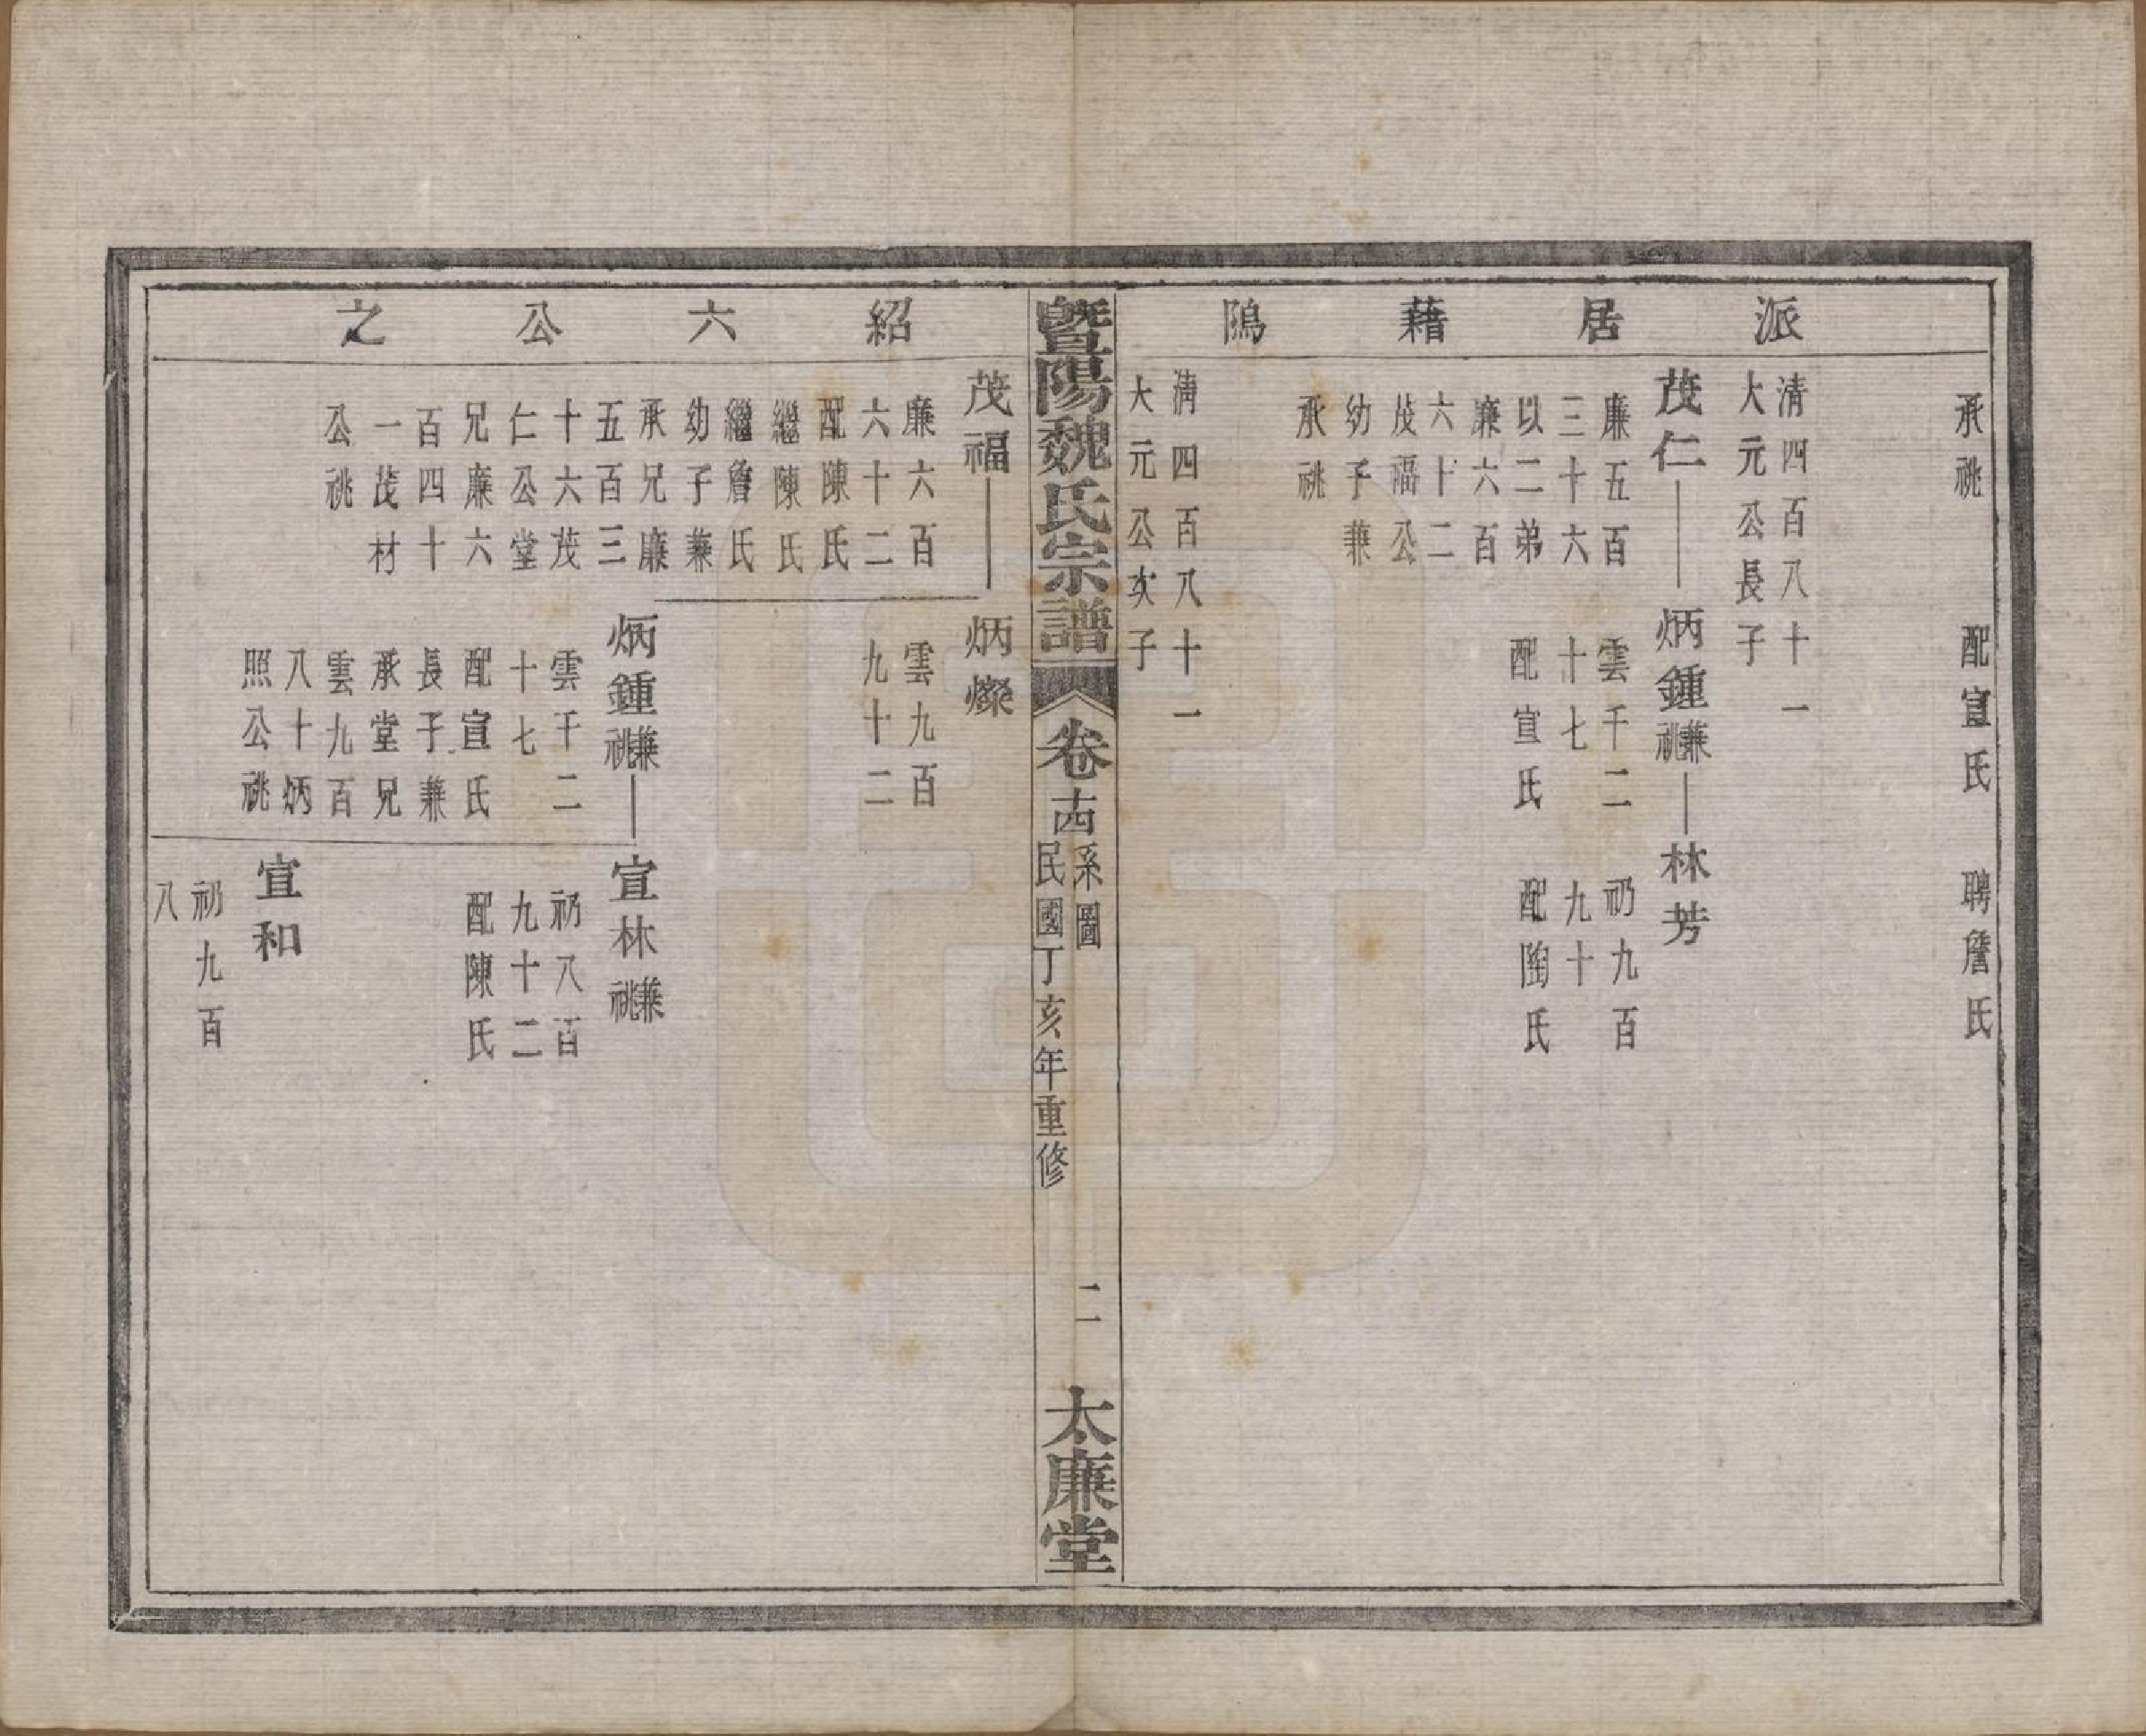 派居藉隖
承祧
配宣氏
聘詹氏
清四百八十一
大元公長子
茂仁
廉五百
三十六
以二弟
廉六百
六十二
茂福公
幼子兼
承祧
炳鍾兼祧
雲千二
十七
配宣氏
林芳
礽九百
九十
配陶氏
清四百八十一
大元公次子
暨陽魏氏宗譜
卷十四
系圖
民國丁亥年重修
二
太廉堂
紹六公之
茂福
廉六百
六十二
配陳氏
繼陳氏
繼詹氏
幼子兼
承兄廉
五百三
十六茂
仁公堂
兄廉六
百四十
一茂材
公祧
炳燦
雲九百
九十二
炳鍾兼祧
雲千二
十七
配宣氏
長子兼
承堂兄
雲九百
八十炳
照公祧
宣林兼祧
礽八百
九十二
配陳氏
宣和
礽九百
八